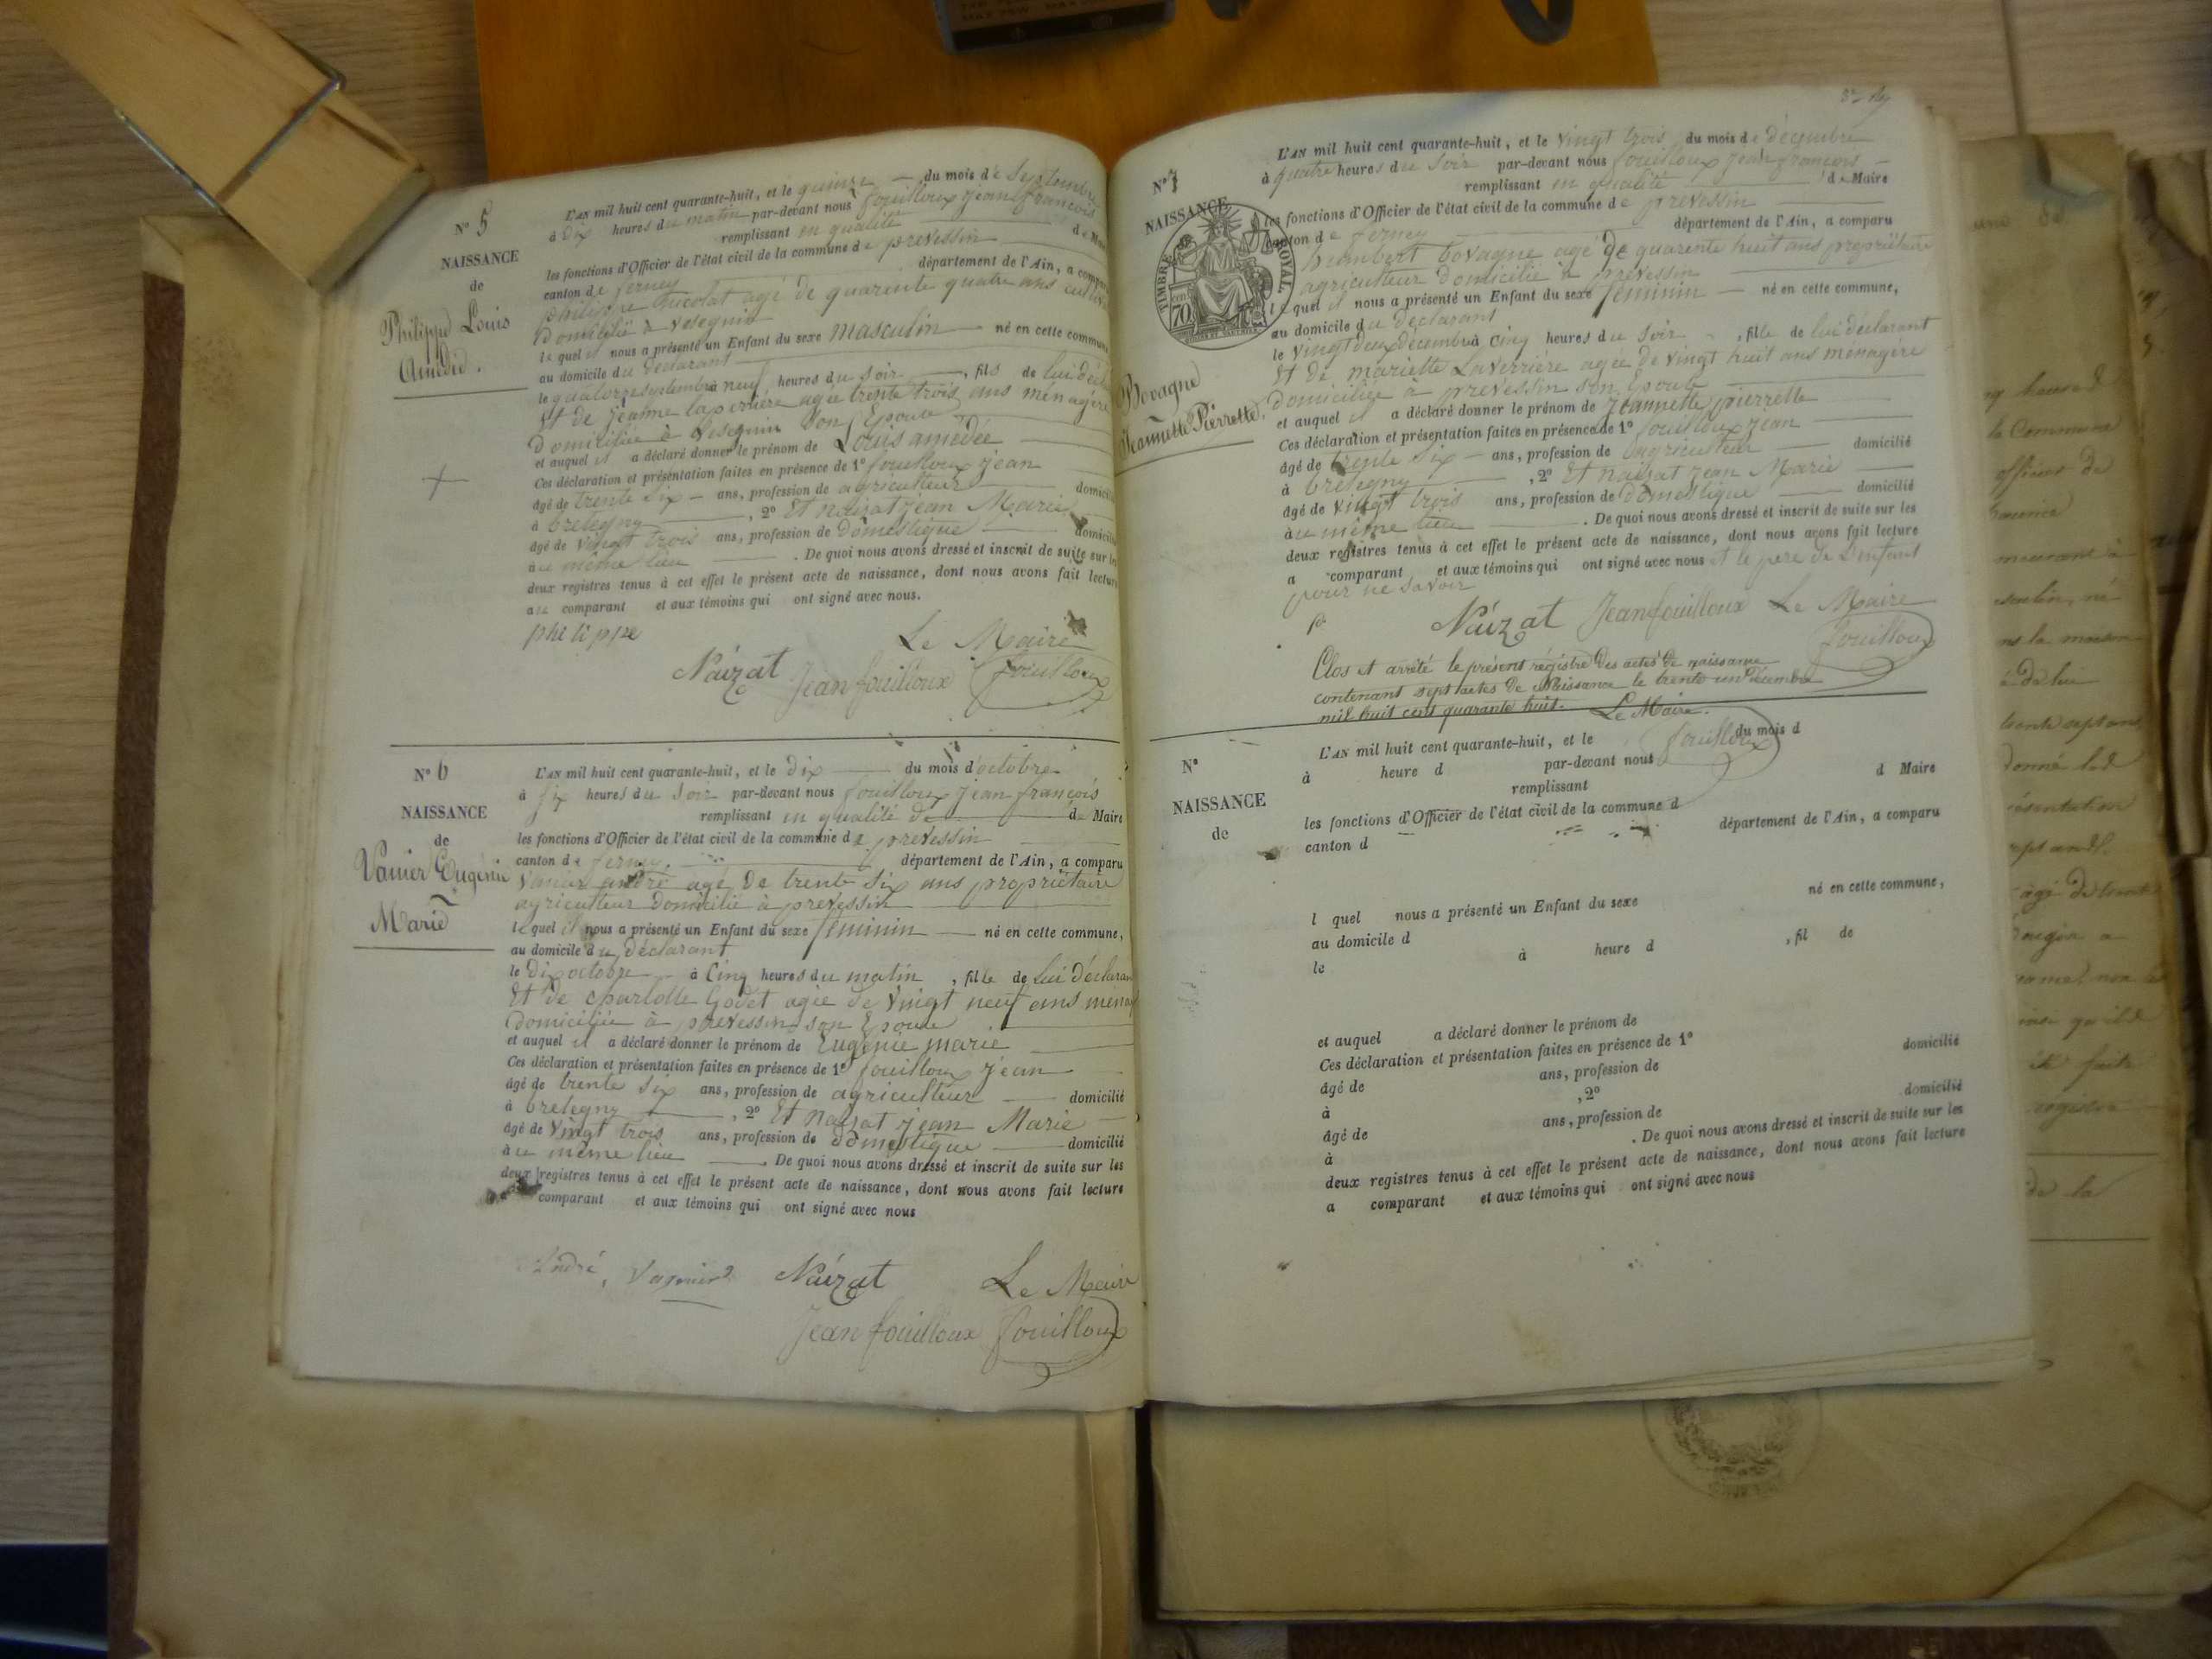 N° 5
NAISSANCE
de
Philippe Louis
Amédéé.
L'AN mil huit cent quarante-huit, et le quinze du mois de Septembre
à dix heures du matin par-devant nous fouilloux jean françois
remplissant en qualité de Maire
les fonctions d'Officier de l'état civil de la commune de prevessin
canton de ferney département de l'Ain, a comparu
philippe nicolat agé de quarente quatre ans
Domicilié à Vesegnin
lequel il nous a présenté un Enfant du sexe masculin né en cette commune
au domicile du déclarant
le quatorze septembre à neuf heures du soir, fils de lui
Et de jeanne laperrière agée trente trois ans ménagère
Domiciliée à Vesegnin son Epouse
et auquel il a déclaré donner le prénom de Louis amédée
Ces déclaration et présentation faites en présence de 1° fouilloux jean
âgé de trente six ans, profession de agriculteur
à bretegny, 2° Et naizat jean Marie
âgé de vingt trois ans, profession de Domestique
au même lieu. De quoi nous avons dressé et inscrit de suite sur les
deux registres tenus à cet effet le présent acte de naissance, dont nous avons fait lecture
au comparant et aux témoins qui ont signé avec nous.
philippe Le Maire
Naizat Jean fouilloux fouilloux
N° 6
NAISSANCE
de
Vanier Eugénie
Marie
L'AN mil huit cent quarante-huit, et le dix du mois d'octobre
à six heures du soir par-devant nous fouilloux jean françois
remplissant en qualité de de Maire
les fonctions d'Officier de l'état civil de la commune de prevessin
canton de ferney département de l'Ain, a comparu
Vanier andré agé de trente six ans propriétaire
agriculteur domicilié à prevessin
lequel il nous a présenté un Enfant du sexe féminin né en cette commune,
au domicile du déclarant
le dix octobre à cinq heures du matin, fille de lui déclarant
Et de charlotte Godet agée de vingt neuf ans
domiciliée à prevessin son Epouse
et auquel il a déclaré donner le prénom de Eugénie marie
Ces déclaration et présentation faites en présence de 1° fouilloux jean
âgé de trente six ans, profession de agriculteur domicilié
à bretegny, 2° Et naizat jean Marie
âgé de vingt trois ans, profession de domestique domicilié
au même lieu. De quoi nous avons dressé et inscrit de suite sur les
deux registres tenus à cet effet le présent acte de naissance, dont nous avons fait lecture
comparant et aux témoins qui ont signé avec nous
André Vagnier Naizat Le Maire
Jean fouilloux fouilloux
N° 7
NAISSANCE
TIMBRE ROYAL
70
Bovagne
Jeannette Pierrette.
L'AN mil huit cent quarante-huit, et le vingt trois du mois de décembre
à quatre heures du soir par-devant nous fouilloux jean françois
remplissant en qualité de Maire
les fonctions d'Officier de l'état civil de la commune de prevessin
canton de ferney département de l'Ain, a comparu
humbert bovagne agé de quarente huit ans propriétaire
agriculteur domicilié à prevessin
lequel il nous a présenté un Enfant du sexe féminin né en cette commune,
au domicile du déclarant
le vingt deux décembre à cinq heures du soir, fille de lui déclarant
Et de mariette Laverrière agée de vingt huit ans ménagère
domiciliée à prevessin son Epouse
et auquel il a déclaré donner le prénom de Jeannette pierrette
Ces déclaration et présentation faites en présence de 1° fouilloux jean
âgé de trente six ans, profession de agriculteur domicilié
à bretegny, 2° Et naizat jean Marie
âgé de vingt trois ans, profession de domestique domicilié
au même lieu. De quoi nous avons dressé et inscrit de suite sur les
deux registres tenus à cet effet le présent acte de naissance, dont nous avons fait lecture
a comparant et aux témoins qui ont signé avec nous et le père de l'enfant
pour ne savoir
Naizat Jean fouilloux Le Maire
fouilloux
Clos et arrêté le présent régistre des actes de naissance
contenant sept actes de Naissance le trente un décembre
mil huit cent quarante huit. Le Maire.
fouilloux
N°
NAISSANCE
de
L'AN mil huit cent quarante-huit, et le du mois d
à heure d par-devant nous
remplissant d Maire
les fonctions d'Officier de l'état civil de la commune d
canton d département de l'Ain, a comparu
l quel nous a présenté un Enfant du sexe né en cette commune,
au domicile d
le à heure d , fil de
et auquel a déclaré donner le prénom de
Ces déclaration et présentation faites en présence de 1°
âgé de ans, profession de domicilié
à , 2°
âgé de ans, profession de domicilié
à . De quoi nous avons dressé et inscrit de suite sur les
deux registres tenus à cet effet le présent acte de naissance, dont nous avons fait lecture
a comparant et aux témoins qui ont signé avec nous